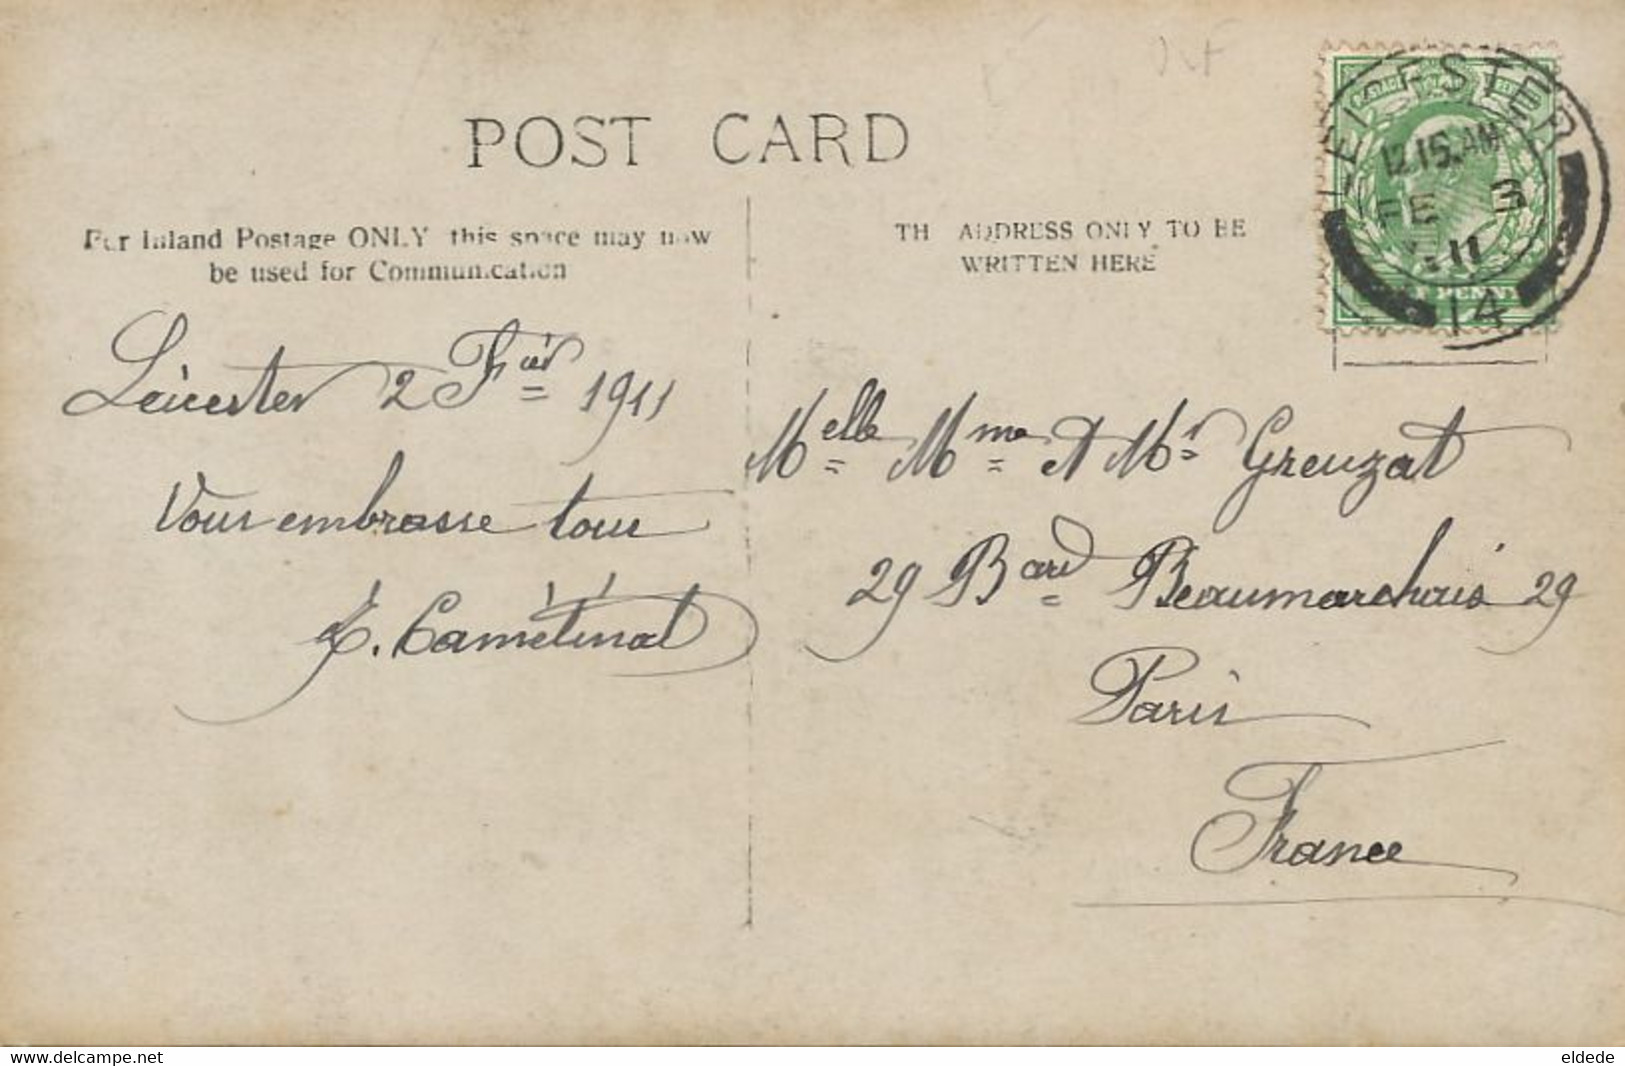 POST CARD
For Inland Postage ONLY this space may now
be used for Communication
TH ADDRESS ONLY TO BE
WRITTEN HERE
LEICESTER
12.15.AM
FE 3
11
14
PENNY
Leicester 2 Fier 1911
Vous embrasse tous
Melle Mme et Mr Greuzat
29 Bard Beaumarchais 29
Paris
France
www.delcampe.net
eldede